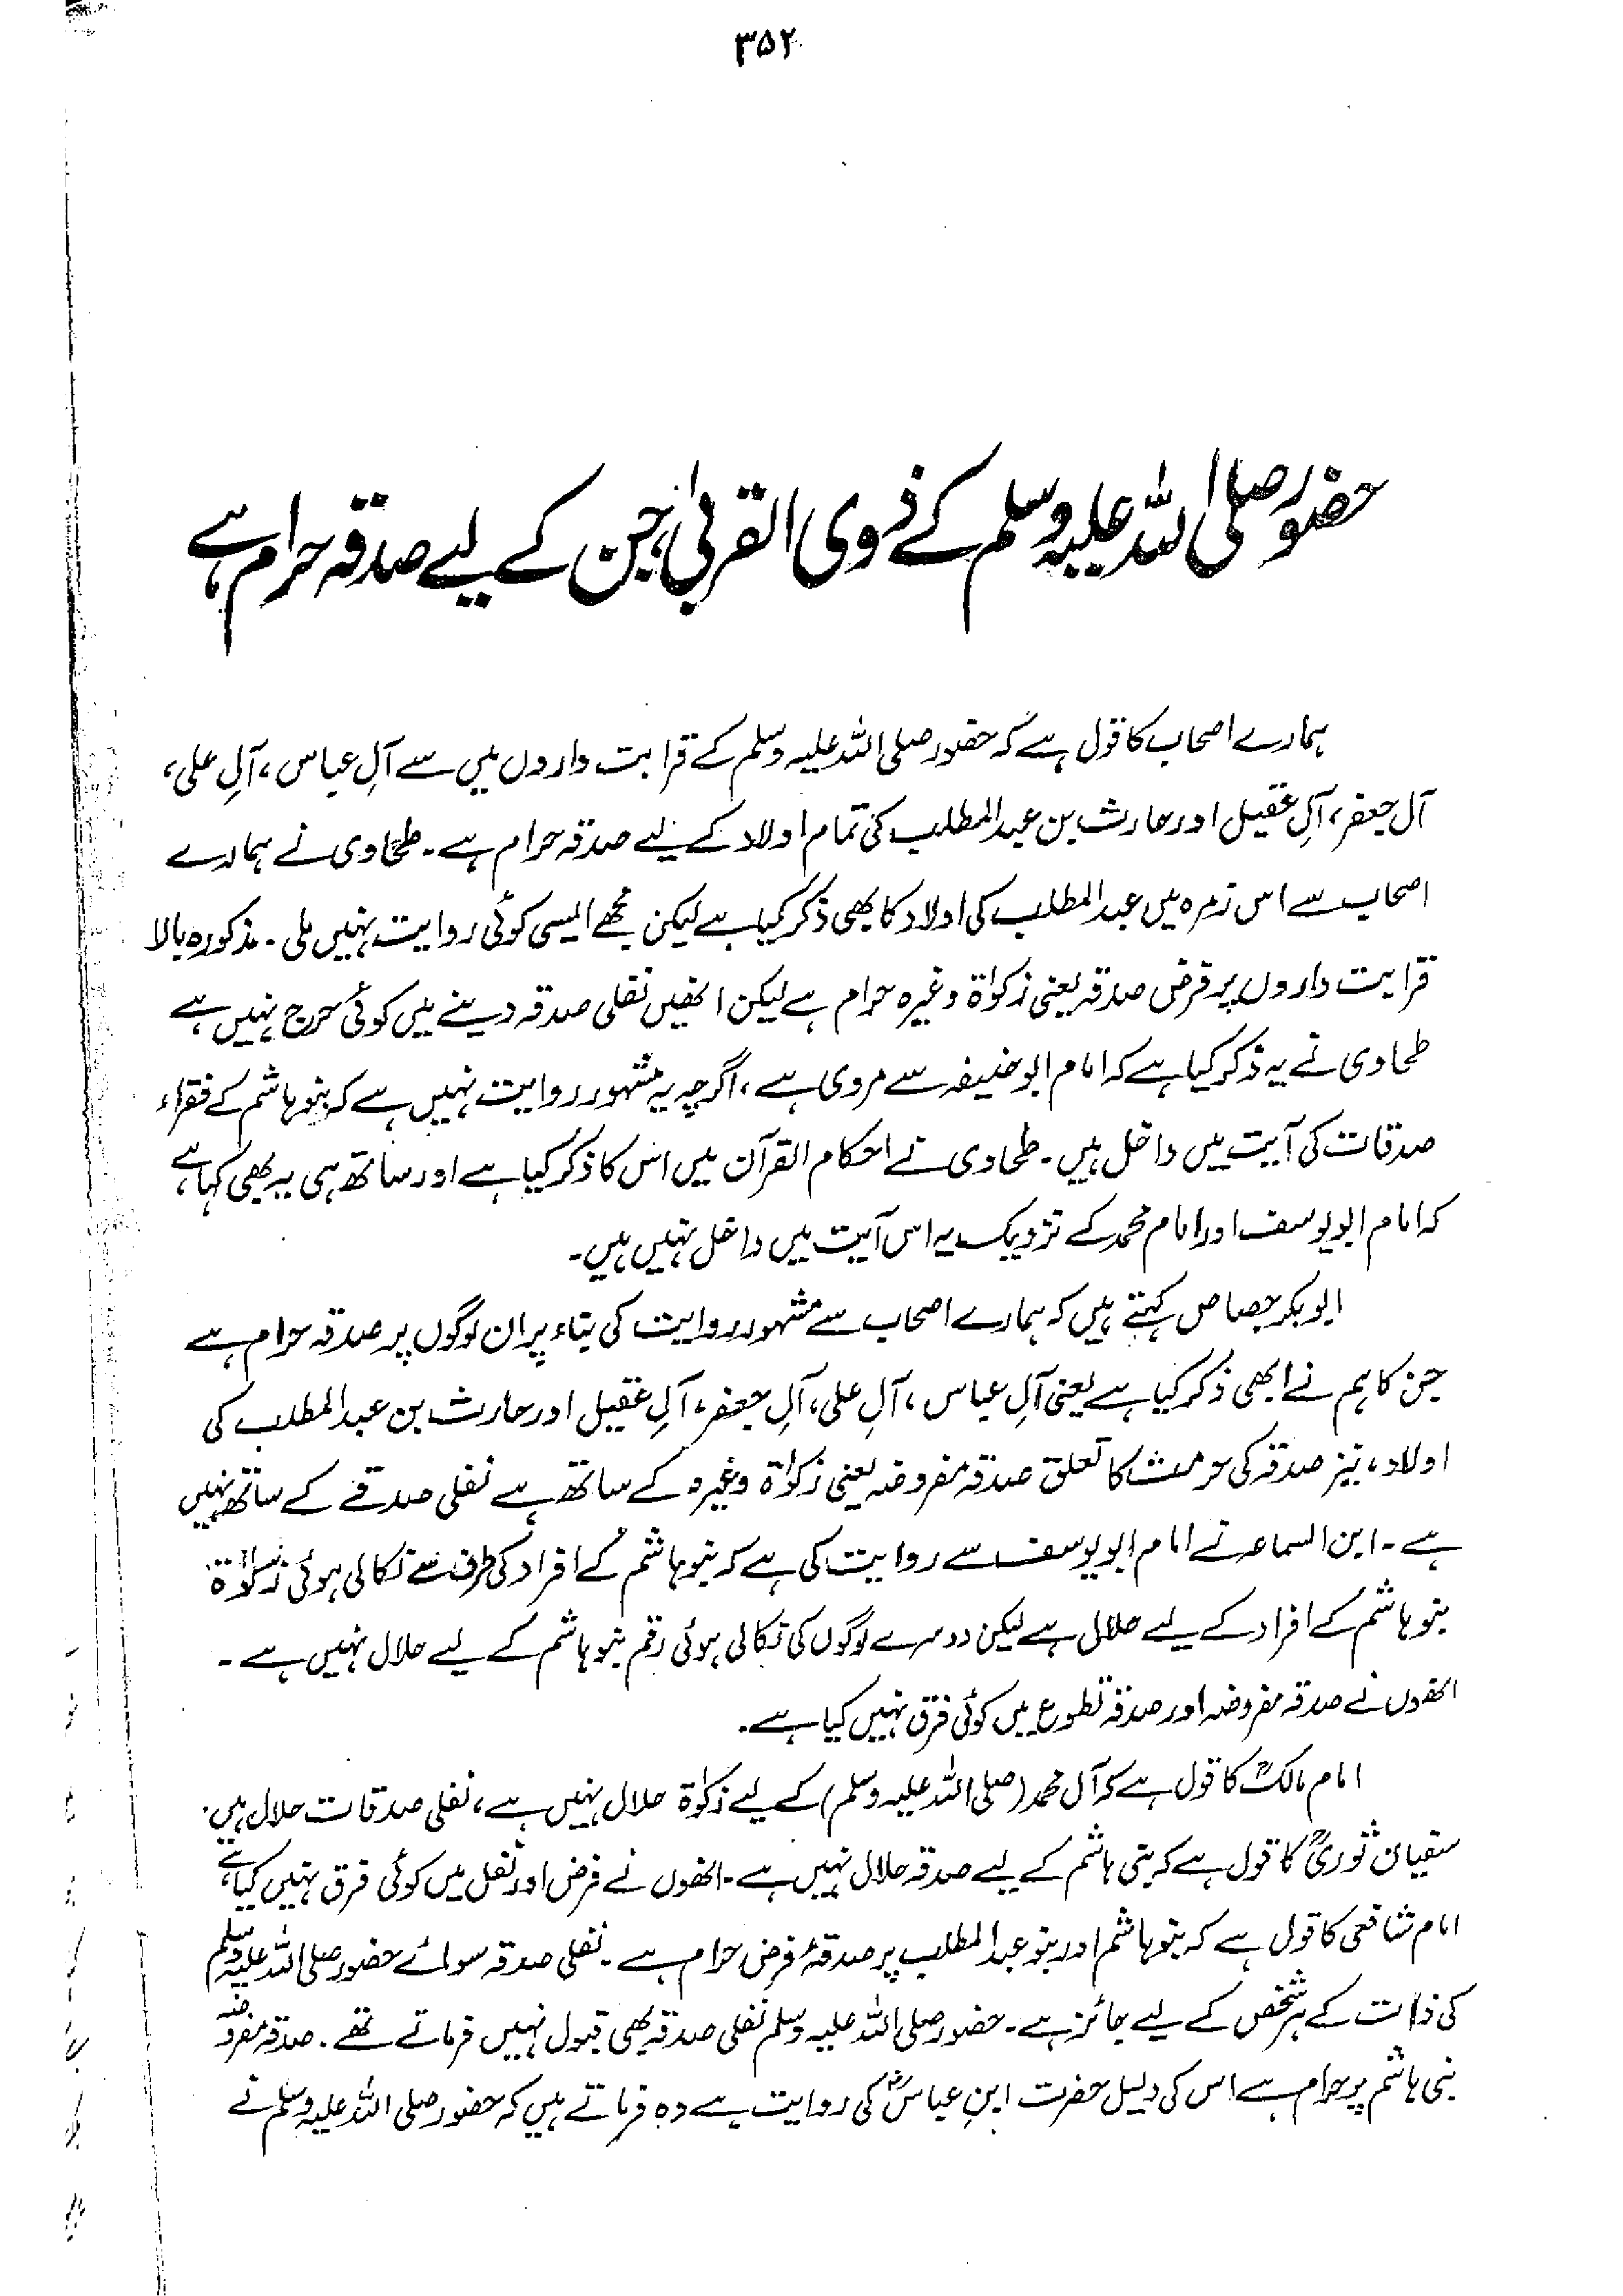 ۳۵۲
حضور صلی اللہ علیہ وسلم کے ذوی القربیٰ، جن کے لیے صدقہ حرام ہے
ہمارے اصحاب کا قول ہے کہ حضور صلی اللہ علیہ وسلم کے قرابت داروں میں سے آلِ عباس، آلِ علی،
آل جعفر، آلِ عقیل اور حارث بن عبدالمطلب کی تمام اولاد کے لیے صدقہ حرام ہے۔ طحاوی نے ہمارے
اصحاب سے اس زمرہ میں عبدالمطلب کی اولاد کا بھی ذکر کیا ہے لیکن مجھے ایسی کوئی روایت نہیں ملی۔ مذکورہ بالا
قرابت داروں پر فرض صدقہ یعنی زکوٰۃ وغیرہ حرام ہے لیکن انھیں نفلی صدقہ دینے میں کوئی حرج نہیں ہے
طحاوی نے یہ ذکر کیا ہے کہ امام ابوحنیفہ سے مروی ہے، اگرچہ یہ مشہور روایت نہیں ہے کہ بنو ہاشم کے فقراء
صدقات کی آیت میں داخل ہیں۔ طحاوی نے احکام القرآن میں اس کا ذکر کیا ہے اور ساتھ ہی یہ بھی کہا ہے
کہ امام ابویوسف اور امام محمد کے نزدیک یہ اس آیت میں داخل نہیں ہیں۔
ابوبکر جصاص کہتے ہیں کہ ہمارے اصحاب سے مشہور روایت کی بناء پر ان لوگوں پر صدقہ حرام ہے
جن کا ہم نے ابھی ذکر کیا ہے یعنی آلِ عباس، آلِ علی، آلِ جعفر، آلِ عقیل اور حارث بن عبدالمطلب کی
اولاد، نیز صدقہ کی حرمت کا تعلق صدقہ مفروضہ یعنی زکوٰۃ وغیرہ کے ساتھ ہے نفلی صدقے کے ساتھ نہیں
ہے۔ ابن السماعہ نے امام ابویوسف سے روایت کی ہے کہ بنو ہاشم کے افراد کی طرف سے نکالی ہوئی زکوٰۃ
بنو ہاشم کے افراد کے لیے حلال ہے لیکن دوسرے لوگوں کی نکالی ہوئی رقم بنو ہاشم کے لیے حلال نہیں ہے۔
انھوں نے صدقہ مفروضہ اور صدقہ تطوع میں کوئی فرق نہیں کیا ہے۔
امام مالکؒ کا قول ہے کہ آل محمد (صلی اللہ علیہ وسلم) کے لیے زکوٰۃ حلال نہیں ہے، نفلی صدقات حلال ہیں۔
سفیان ثوریؒ کا قول ہے کہ بنی ہاشم کے لیے صدقہ حلال نہیں ہے۔ انھوں نے فرض اور نفل میں کوئی فرق نہیں کیا ہے،
امام شافعی کا قول ہے کہ بنو ہاشم اور بنو عبدالمطلب پر صدقۂ فرض حرام ہے۔ نفلی صدقہ سوائے حضور صلی اللہ علیہ وسلم
کی ذات کے ہر شخص کے لیے جائز ہے۔ حضور صلی اللہ علیہ وسلم نفلی صدقہ بھی قبول نہیں فرماتے تھے۔ صدقہ مفروضہ
بنی ہاشم پر حرام ہے اس کی دلیل حضرت ابنِ عباسؓ کی روایت ہے وہ فرماتے ہیں کہ حضور صلی اللہ علیہ وسلم نے